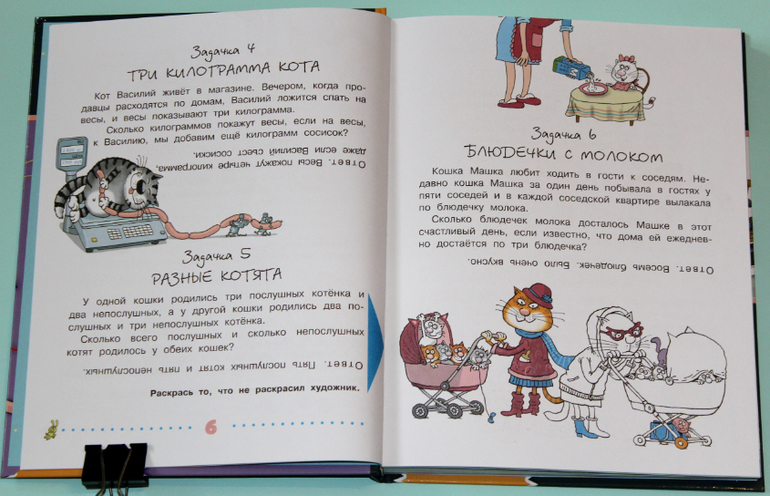 Задачка 4
ТРИ КИЛОГРАММА КОТА
Кот Василий живёт в магазине. Вечером, когда про-
давцы расходятся по домам, Василий ложится спать на
весы, и весы показывают три килограмма.
Сколько килограммов покажут весы, если на весы,
к Василию, мы добавим ещё килограмм сосисок?
Ответ. Весы покажут четыре килограмма,
даже если Василий съест сосиски.
Задачка 5
РАЗНЫЕ КОТЯТА
У одной кошки родились три послушных котёнка и
два непослушных, а у другой кошки родились два по-
слушных и три непослушных котёнка.
Сколько всего послушных и сколько непослушных
котят родилось у обеих кошек?
Ответ. Пять послушных котят и пять непослушных.
Раскрась то, что не раскрасил художник.
6
Задачка 6
БЛЮДЕЧКИ С МОЛОКОМ
Кошка Машка любит ходить в гости к соседям. Не-
давно кошка Машка за один день побывала в гостях у
пяти соседей и в каждой соседской квартире вылакала
по блюдечку молока.
Сколько блюдечек молока досталось Машке в этот
счастливый день, если известно, что дома ей ежеднев-
но достаётся по три блюдечка?
Ответ. Восемь блюдечек. Было очень вкусно.